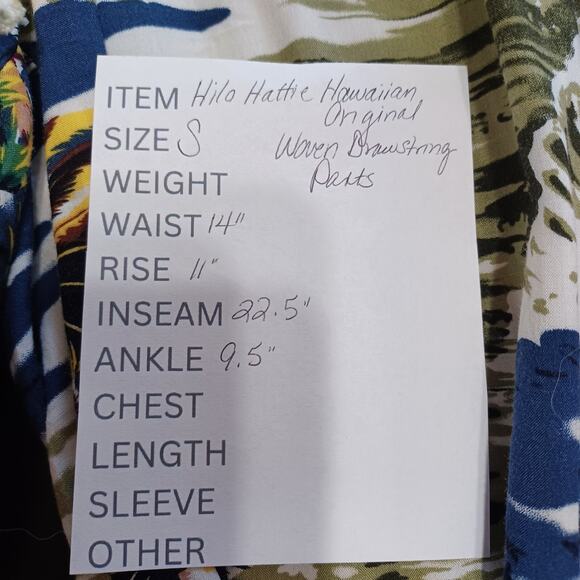 ITEM Hilo Hattie Hawaiian
Original
SIZE S Woven Drawstring
WEIGHT Pants
WAIST 14"
RISE 11"
INSEAM 22.5"
ANKLE 9.5"
CHEST
LENGTH
SLEEVE
OTHER